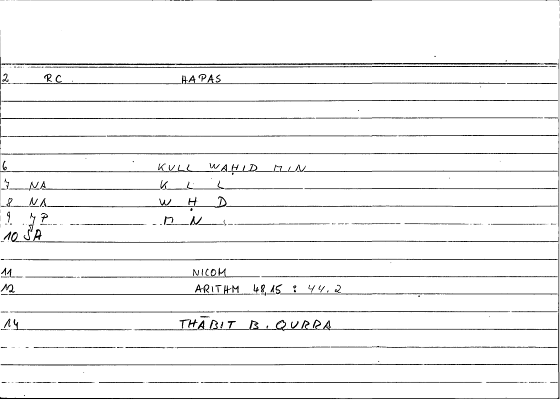 2 RC. HAPAS
6 KULL WAḤID MIN
7 NA K L L
8 NA W Ḥ D
9 7P M N
10 SA
11 NICOM
12 ARITHM 48,15 : 44.2
14 THĀBIT B. QURRA